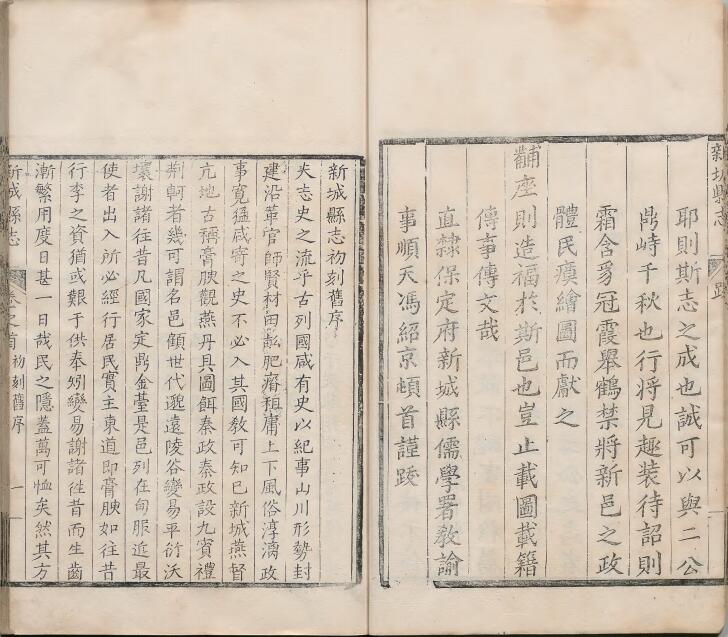 耶則斯志之成也誠可以與二公
鼎峙千秋也行將見趣装待詔則
霜含豸冠霞舉鶴禁將新邑之政
體民瘼繪圖而獻之
黼座則造福於斯邑也豈止載圖載籍
傳事傳文哉
直隸保定府新城縣儒學署敎諭
事順天馮紹京頓首謹跋
新城縣志初刻舊序
夫志史之流乎古列國咸有史以紀事山川形勢封
建沿革官師賢材田彭肥瘠租庸上下風俗淳漓政
事寛猛咸寄之史不必入其國敎可知已新城燕督
亢地古稱膏腴觀燕丹具圖餌秦政秦政設九賓禮
荆軻者幾可謂名邑顧世代邈遠陵谷變易平衍沃
壤謝諸往昔凡國家定鼎金臺是邑列在甸服近最
使者出入所必經行居民實主東道即膏腴如往昔
行李之資猶或艱于供奉矧變易謝諸徃昔而生齒
漸繁用度日甚一日哉民之隱蓋萬可恤矣然其方
新城縣志
卷之首
初刻舊序
一